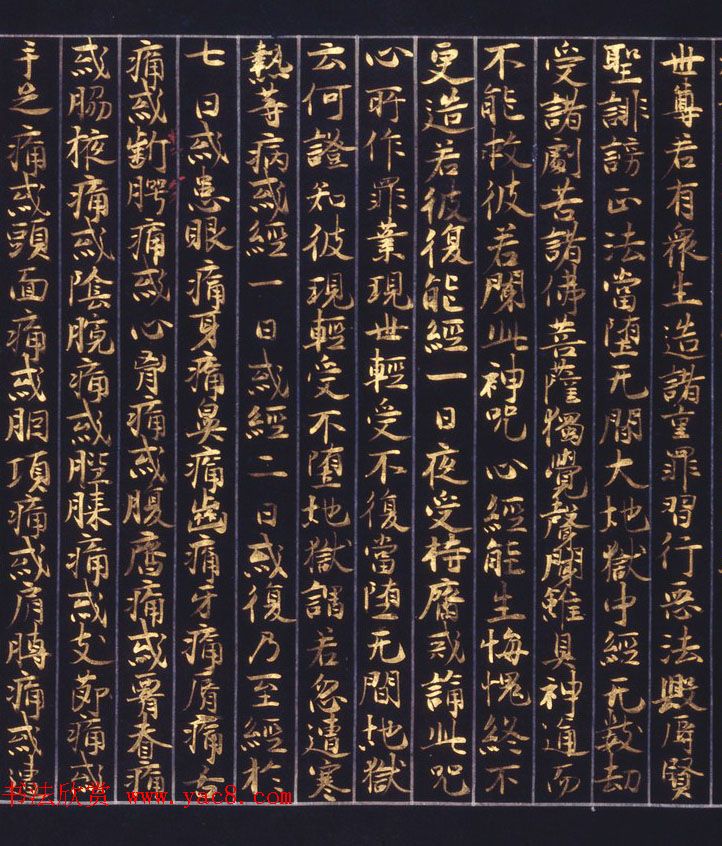 世尊若有衆生造諸重罪習行惡法毀辱賢
聖誹謗正法當堕无間大地獄中經无數劫
受諸劇苦諸佛菩薩獨覺聲聞雖具神通而
不能救彼若聞此神咒心經能生悔愧終不
更造若彼復能經一日夜受持齋戒誦此咒
心所作罪業現世輕受不復當堕无間地獄
云何證知彼現輕受不堕地獄謂若忽遭寒
熱等病或經一日或經二日或復乃至經於
七日或患眼痛耳痛鼻痛齒痛牙痛脣痛舌
痛或齗腭痛或心胷痛或腹痛或脊痛
或脇痛或陰髖痛或膝痛或支節痛或
手足痛或頭面痛或胭項痛或肩膊痛或
书法欣赏 www.yac8.com